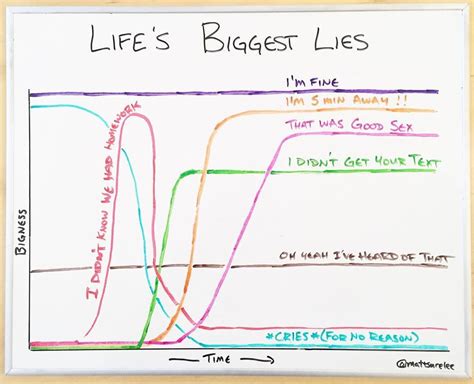 LIFE'S BIGGEST LIES
I'M FINE
I'M 5 MIN AWAY !!
THAT WAS GOOD SEX
I DIDN'T GET YOUR TEXT
I DIDN'T KNOW WE HAD HOMEWORK
OH YEAH I'VE HEARD OF THAT
*CRIES* (FOR NO REASON)
BIGNESS
TIME
@mattsurelee